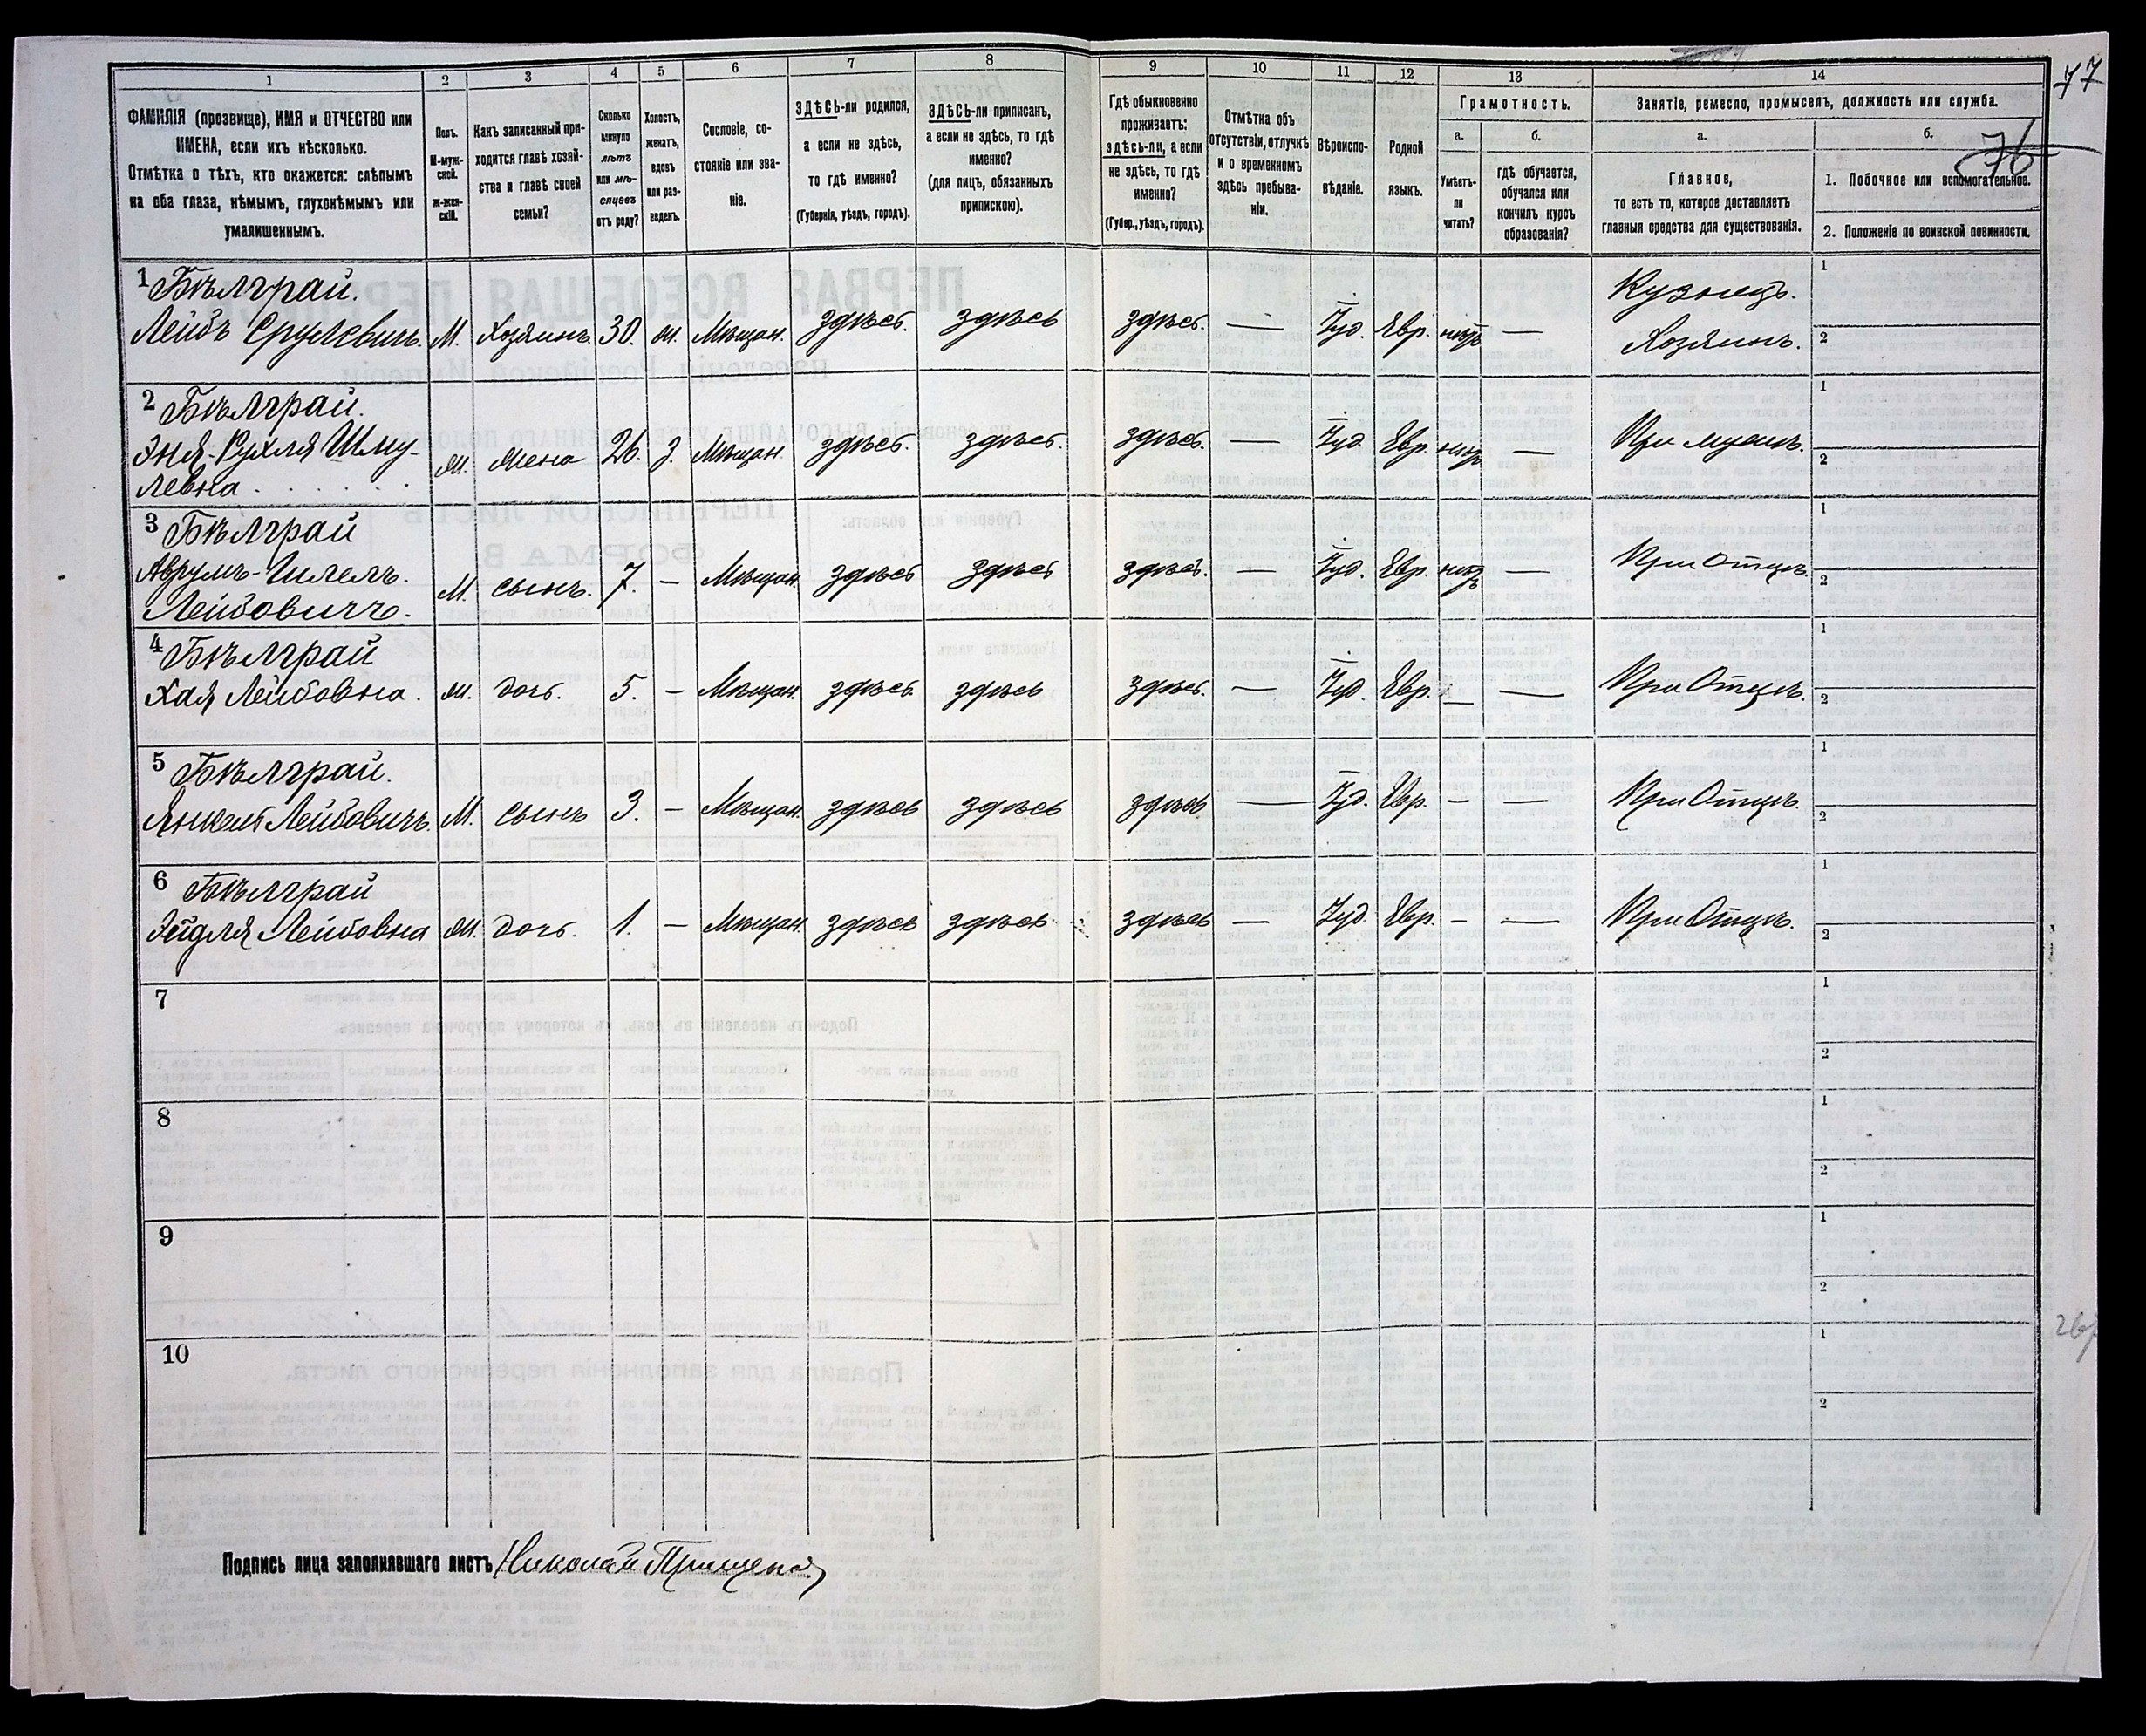 77
76
1 2 3 4 5 6 7 8 9 10 11 12 13 14
ФАМИЛІЯ (прозвище), ИМЯ и ОТЧЕСТВО или
ИМЕНА, если ихъ нѣсколько.
Отмѣтка о тѣхъ, кто окажется: слѣпымъ
на оба глаза, нѣмымъ, глухонѣмымъ или
умалишеннымъ.
Полъ.
М-муж-
ской.
Ж-жен-
скій.
Какъ записанный при-
ходится главѣ хозяй-
ства и главѣ своей
семьи?
Сколько
минуло
лѣтъ
или мѣ-
сяцевъ
отъ роду?
Холостъ,
женатъ,
вдовъ
или раз-
веденъ.
Сословіе, со-
стояніе или зва-
ніе.
ЗДѢСЬ-ли родился,
а если не здѣсь,
то гдѣ именно?
(Губернія, уѣздъ, городъ).
ЗДѢСЬ-ли приписанъ,
а если не здѣсь, то гдѣ
именно?
(для лицъ, обязанныхъ
припискою).
Гдѣ обыкновенно
проживаетъ:
здѣсь-ли, а если
не здѣсь, то гдѣ
именно?
(Губер., уѣздъ, городъ).
Отмѣтка объ
отсутствіи, отлучкѣ
и о временномъ
здѣсь пребыва-
ніи.
Вѣроиспо-
вѣданіе.
Родной
языкъ.
Грамотность.
а. б.
Умѣетъ-
ли
читать?
гдѣ обучается,
обучался или
кончилъ курсъ
образованія?
Занятіе, ремесло, промыселъ, должность или служба.
а. б.
Главное,
то есть то, которое доставляетъ
главныя средства для существованія.
1. Побочное или вспомогательное.
2. Положеніе по воинской повинности.
1 Бѣлграй.
Лейбъ Срулевичъ. М. Хозяинъ 30. ж. Мѣщан. здѣсь. здѣсь здѣсь. — Іуд. Евр. нѣтъ —
Кузнецъ.
Хозяинъ.
1
2
2 Бѣлграй.
Эня-Рухля Шму-
левна
ж. жена 26. з. Мѣщан здѣсь. здѣсь. здѣсь. — Іуд Евр. нѣтъ — При мужѣ.
1
2
3 Бѣлграй
Аврумъ-Гилелъ.
Лейбовичъ.
М. сынъ. 7. — Мѣщан. здѣсь здѣсь здѣсь. — Іуд. Евр. нѣтъ — При Отцѣ.
1
2
4 Бѣлграй
Хая Лейбовна. ж. дочь. 5. — Мѣщан. здѣсь здѣсь здѣсь. — Іуд. Евр. — — При Отцѣ.
1
2
5 Бѣлграй.
Янкель Лейбовичъ. М. сынъ 3. — Мѣщан. здѣсь здѣсь здѣсь — Іуд. Евр. — — При Отцѣ.
1
2
6 Бѣлграй
Эйдля Лейбовна ж. дочь. 1. — Мѣщан. здѣсь здѣсь здѣсь — Іуд. Евр. — — При Отцѣ.
1
2
7
1
2
8
1
2
9
1
2
10
1
2
Подпись лица заполнявшаго листъ Николай Прищепа